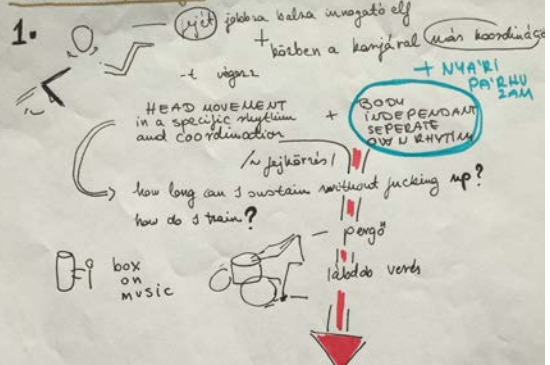 1.
fejét jobbra balra mozgató elf
+ közben a karjával más koordináció
-t végez
+ NYÁRI
PÁRHU
ZAM
HEAD MOVEMENT
in a specific rhythm
and coordination
+
BODY
INDEPENDANT
SEPERATE
OWN RHYTHM
/~ fejkörzés/
how long can I sustain without fucking up?
how do I train?
pergő
lábdob verés
box
on
music